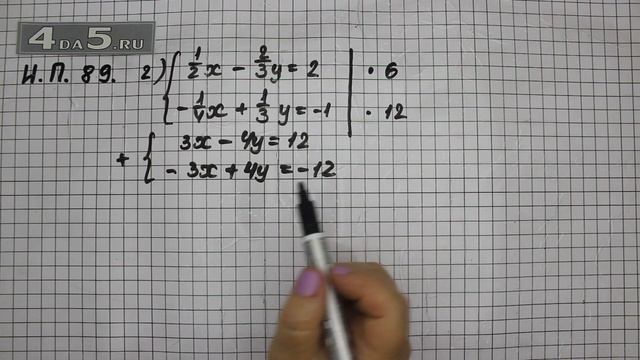 4DA5.RU
И.П. 89. 2) { 1/2 x - 2/3 y = 2 | · 6
- 1/4 x + 1/3 y = -1 | · 12
+ { 3x - 4y = 12
- 3x + 4y = -12